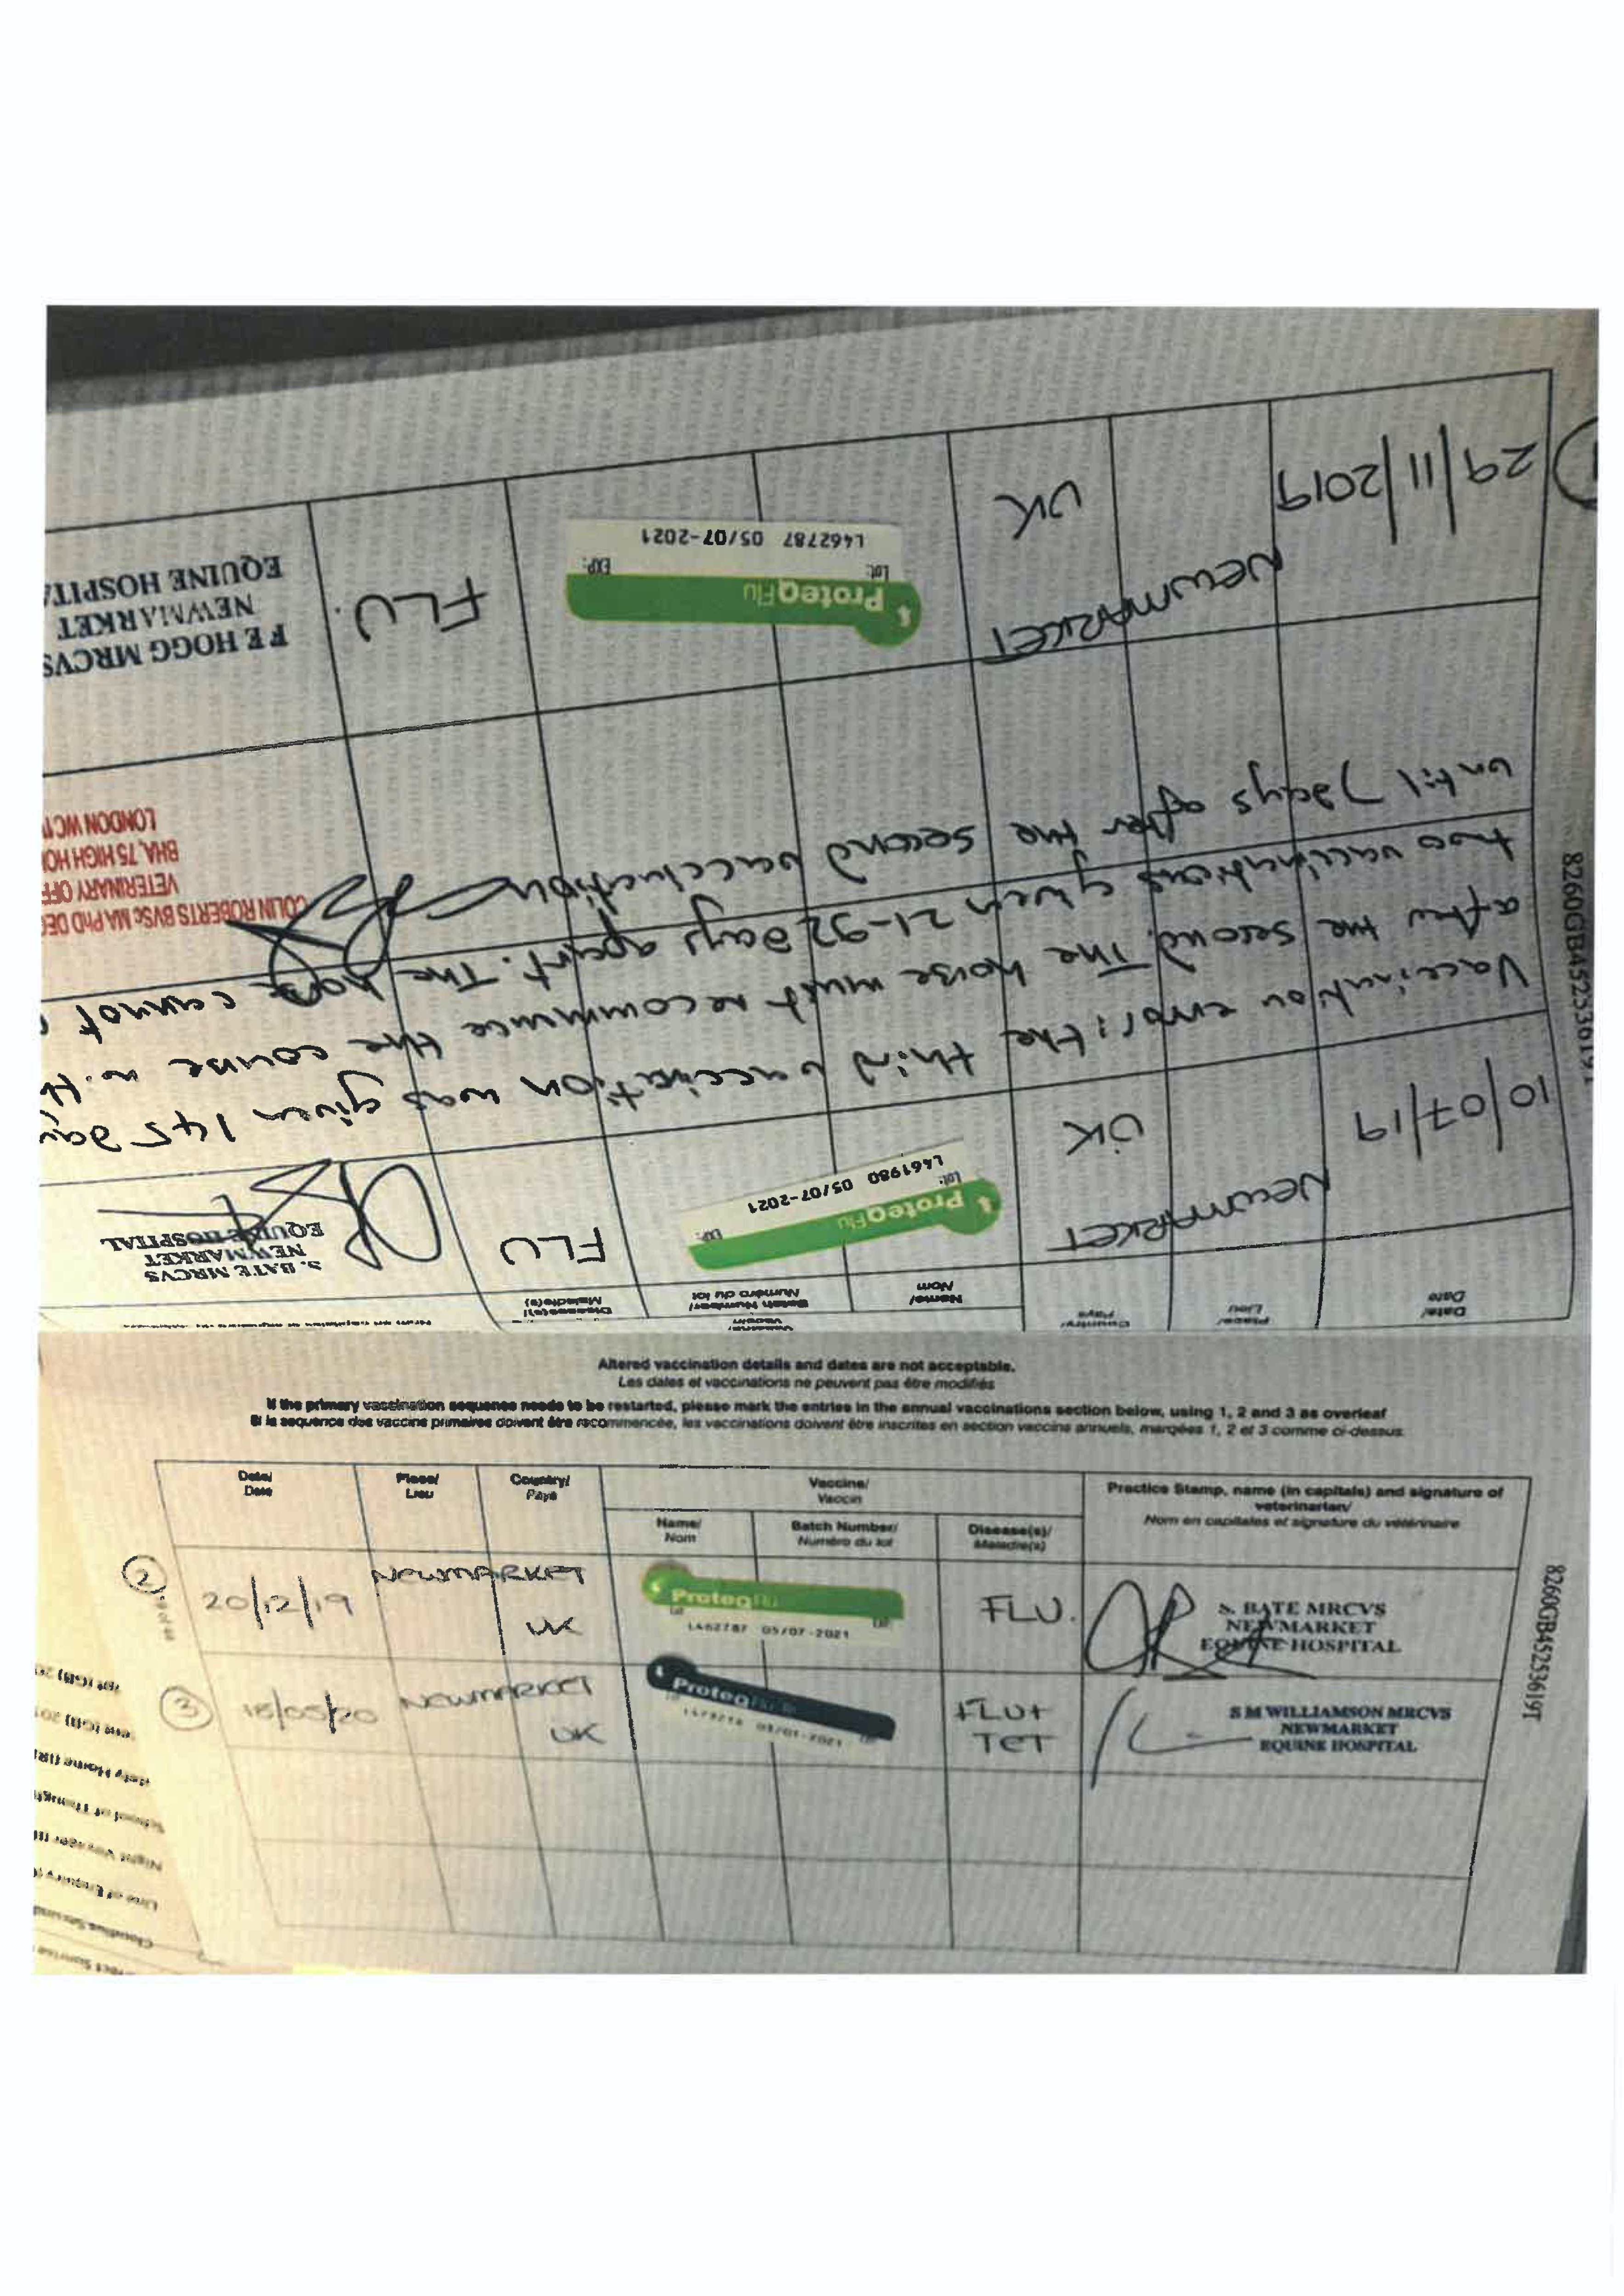 Date/
Date
Place/
Lieu
Country/
Pays
Vaccine/
Vaccin
Name/
Nom
Batch Number/
Numéro du lot
Disease(s)/
Maladie(s)
10/07/19
NEWMARKET
UK
ProteqFlu
Lot: EXP:
L461980 05/07-2021
FLU
S. BATE MRCVS
NEWMARKET
EQUINE HOSPITAL
Vaccination error: the third vaccination was given 145 day
after the second. The horse must recommence the course with
two vaccinations given 21-92 days apart. The horse cannot
until 7 days after the second vaccination
COLIN ROBERTS BVSc MA PhD DE
VETERINARY OFF
BHA, 75 HIGH HO
LONDON WC1
8260GB45253619T
1
29/11/2019
NEWMARKET
UK
ProteqFlu
Lot: EXP:
L462787 05/07-2021
FLU.
F E HOGG MRCVS
NEWMARKET
EQUINE HOSPITA
Altered vaccination details and dates are not acceptable.
Les dates et vaccinations ne peuvent pas être modifiés
If the primary vaccination sequence needs to be restarted, please mark the entries in the annual vaccinations section below, using 1, 2 and 3 as overleaf
Si la sequence des vaccins primaires doivent être recommencée, les vaccinations doivent être inscrites en section vaccins annuels, marqées 1, 2 et 3 comme ci-dessus
Date/
Date
Place/
Lieu
Country/
Pays
Vaccine/
Vaccin
Practice Stamp, name (in capitals) and signature of
veterinarian/
Nom en capitales et signature du vétérinaire
Name/
Nom
Batch Number/
Numéro du lot
Disease(s)/
Maladie(s)
2
20/12/19
NEWMARKET
UK
ProteqFlu
L462787 05/07-2021
FLU.
S. BATE MRCVS
NEWMARKET
EQUINE HOSPITAL
3
18/05/20
NEWMARKET
UK
Proteq
FLU+
TET
S M WILLIAMSON MRCVS
NEWMARKET
EQUINE HOSPITAL
8260GB45253619T
Night Voyager
Line of Enquiry